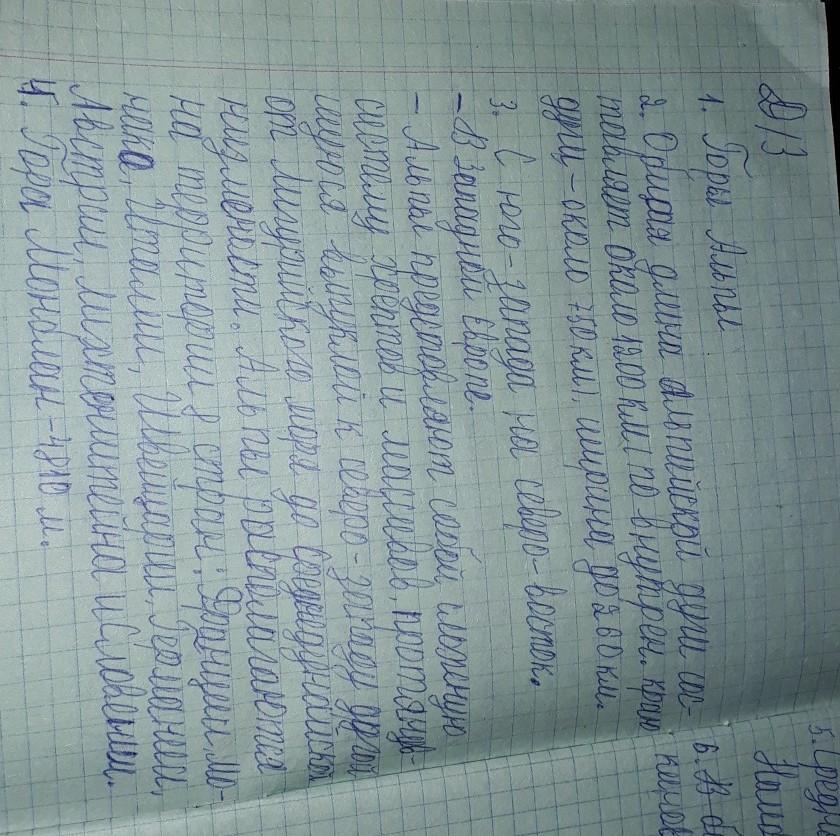 Д/З
1. Горы Альпы
2. Общая длина Альпийской дуги сос-
тавляет около 1200 км (по внутрен. краю
дуги - около 750 км), ширина до 260 км.
3. С юго-запада на северо-восток.
- В западной Европе.
- Альпы представляют собой сложную
систему хребтов и массивов, протянув-
шуюся выпуклой к северо-западу дугой
от Лигурийского моря до Среднедунайской
низменности. Альпы располагаются
на территории 8 стран: Франции, Мо-
нако, Италии, Швейцарии, Германии,
Австрии, Лихтенштейна и Словении.
4. Гора Монблан - 4810 м.
5. Средн
Нали
6. В